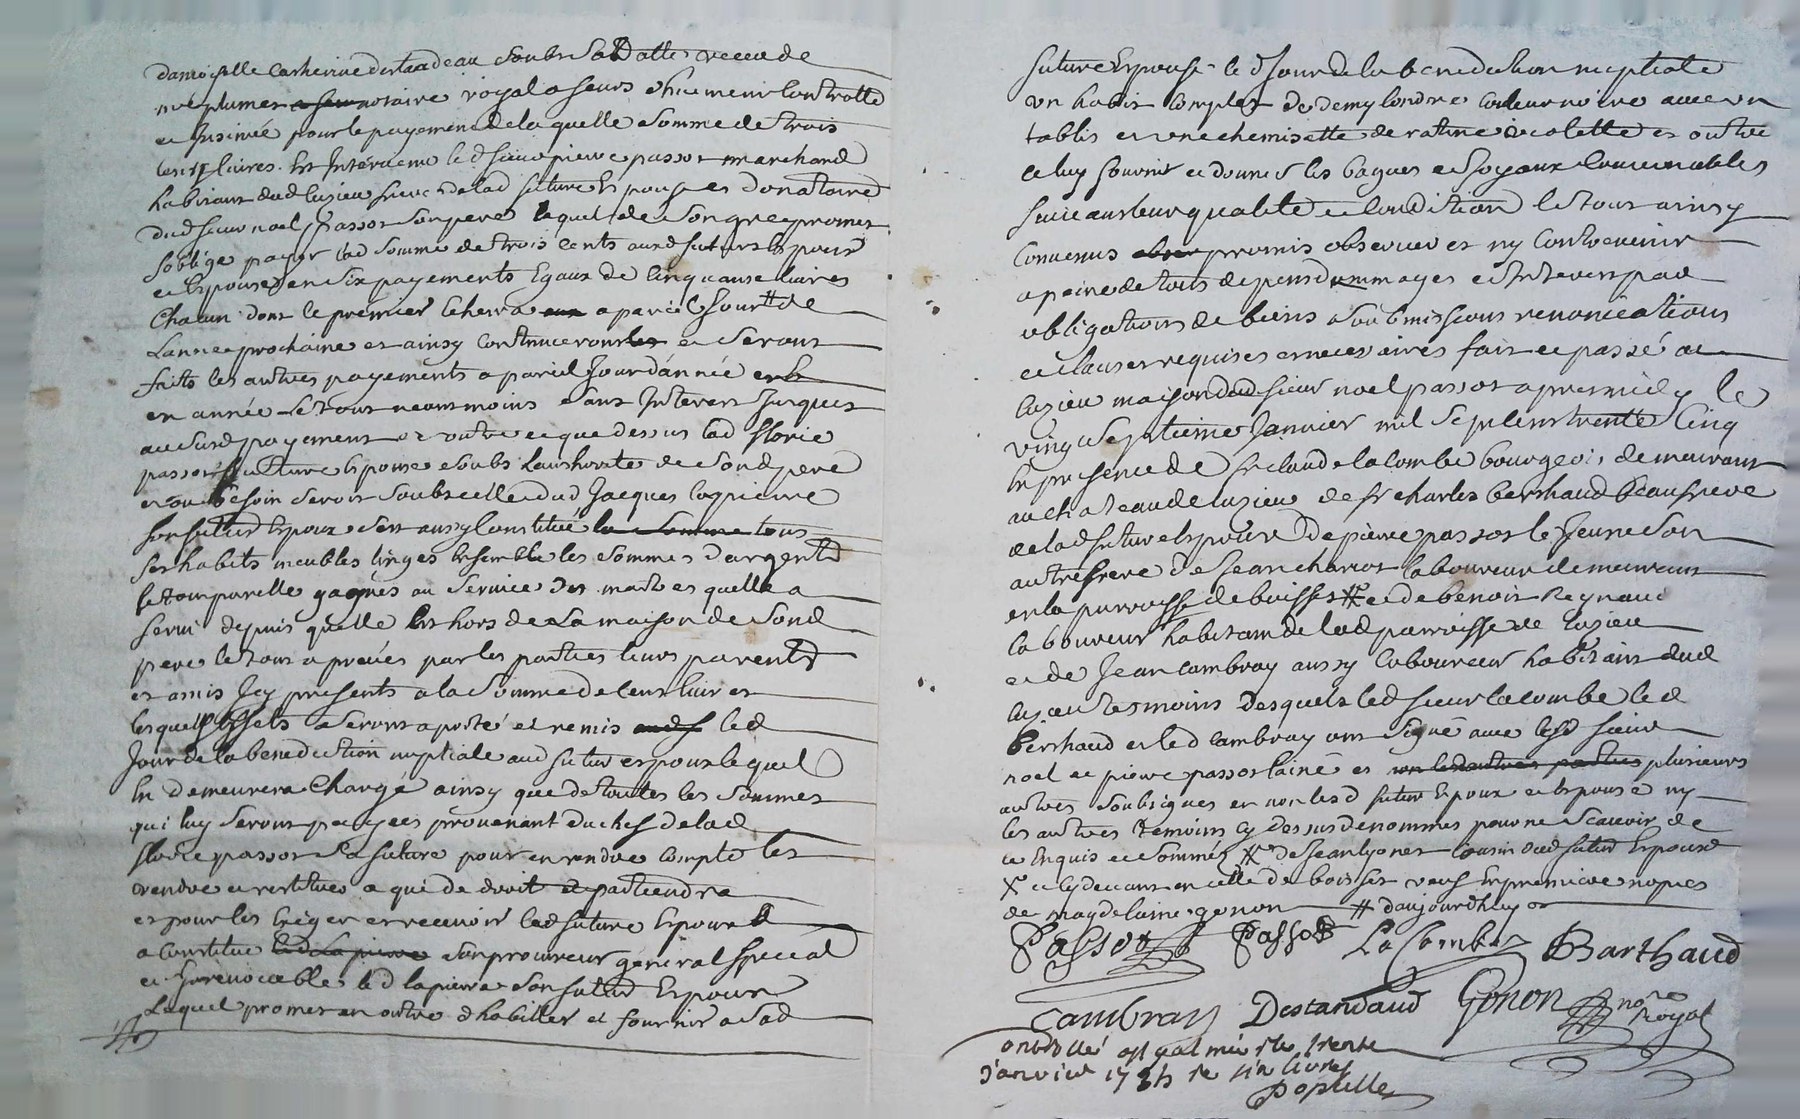 damoiselle Catherine destandeau soubs sa datte receu de
me plumet notaire royal a feurs duement controllé
et Insinué pour le payement de laquelle somme de trois
cents livres. Est Intervenu led sieur pierre passot marchand
habitant dud luzieu frere de lad future Espouse et donataire
dud sieur noel passot son pere lequel de son gre promet
soblige payer lad somme de trois cents aux futurs Espoux
et Espouse en six payements Egaux de Cinquante livres
Chacun dont le premier Echerra a pareil Jour # de
Lannee prochaine et ainsy continueront et seront
faits les autres payements a pareil Jour dannée
en année le tout neantmoins sans Interest Jusques
aud payement et outre ce que dessus lad florie
passot future Espouse soubs Lauthorité de sond pere
et au besoin seroit soubs celle dud Jacques lapierre
son futur Espoux sest aussy Constitué la somme tous
ses habits meubles linges Ensemble les sommes dargent
le tout par elle gagnés au service des maitres quelle a
servi depuis quelle Est hors de la maison de sond
pere le tout apreciés par les parties leurs parents
et amis Icy presents a la somme de cent livres
lesquels Effets seront aporté et remis led
Jour de la benediction nuptiale aud futur espoux lequel
En demeurera Chargé ainsy que de toutes les sommes
qui luy seront payees provenant du chef de lad
florie passot sa future pour en rendre compte les
rendre et restituer a qui de droit apartiendra
et pour les Exiger et recevoir lad future Espouse
a Constitué led Lapierre son procureur general special
et Irrevocable led lapierre son futur Espoux
Lequel promet en outre dhabiller et fournir a sad
future Espouse le d Jour de la benediction nuptiale
un habit complet de demy londre couleur noire avec un
tablis et une chemisette de ratine violette et outre
ce luy fournir et donner les bagues et Joyaux Convenables
suivant leur qualité et Condition le tout ainsy
Convenus promis observer et ny Contrevenir
a peine de tous depens dommages et Interets par
obligations de biens soubmissions renonciations
et clauses requises et necessaires fait et passé au
luzieu maison dud sieur noel passot apres midy le
vingt septieme Janvier mil sept cent trente Cinq
En presence de sr claude lacombe bourgeois demeurant
au chateau de luzieu de sr charles berthaud beaufrere
de lad future Espouse de pierre passot le Jeune son
autre frere de Jean chariot laboureur demeurant
en la parroisse de boisset # et de benoit Reynaud
laboureur habitant de lad parroisse de luzieu
et de Jean Cambray aussy laboureur habitant dud
luzieu tesmoins desquels led sieur lacombe led
berthaud et led Cambray ont signé avec lesd sieurs
noel et pierre passot lainé et plusieurs
autres soubsignes et non lesd futur Espoux et Espouse ny
les autres temoins cy dessus denommes pour ne scavoir de
ce Enquis et sommés X de Jean lyonet Cousin dud futur Espoux
X et cy devant en celle de boisset veuf En premieres nopces
de magdelaine gonon # daujourdhuy
Passot Passot LaCombe Barthaud
Cambray Destandaud Gonon nore Royal
Controllé a st galmier le trente
Janvier 1735 re six livres
Populle